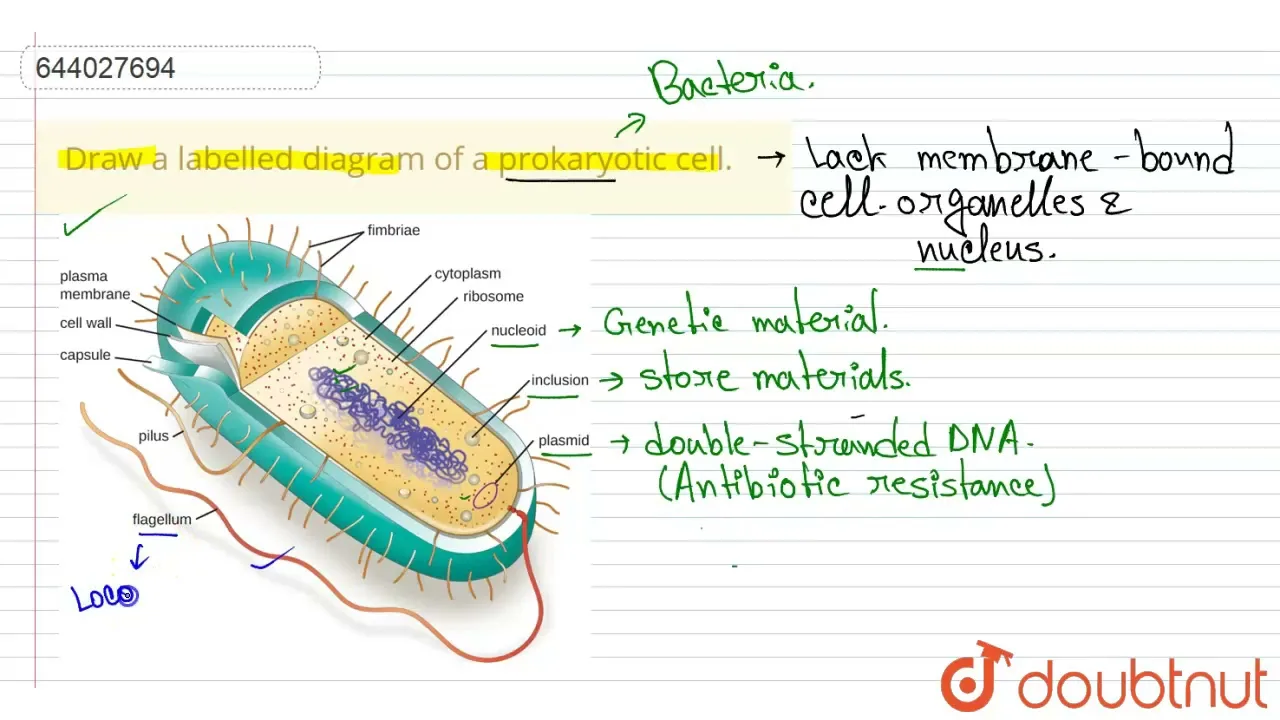 644027694
Bacteria.
Draw a labelled diagram of a prokaryotic cell. → Lack membrane-bound
cell-organelles &
nucleus.
fimbriae
plasma
membrane
cytoplasm
ribosome
cell wall
nucleoid → Genetic material.
capsule
inclusion → store materials.
pilus
plasmid → double-stranded DNA.
(Antibiotic resistance)
flagellum
Loco
doubtnut